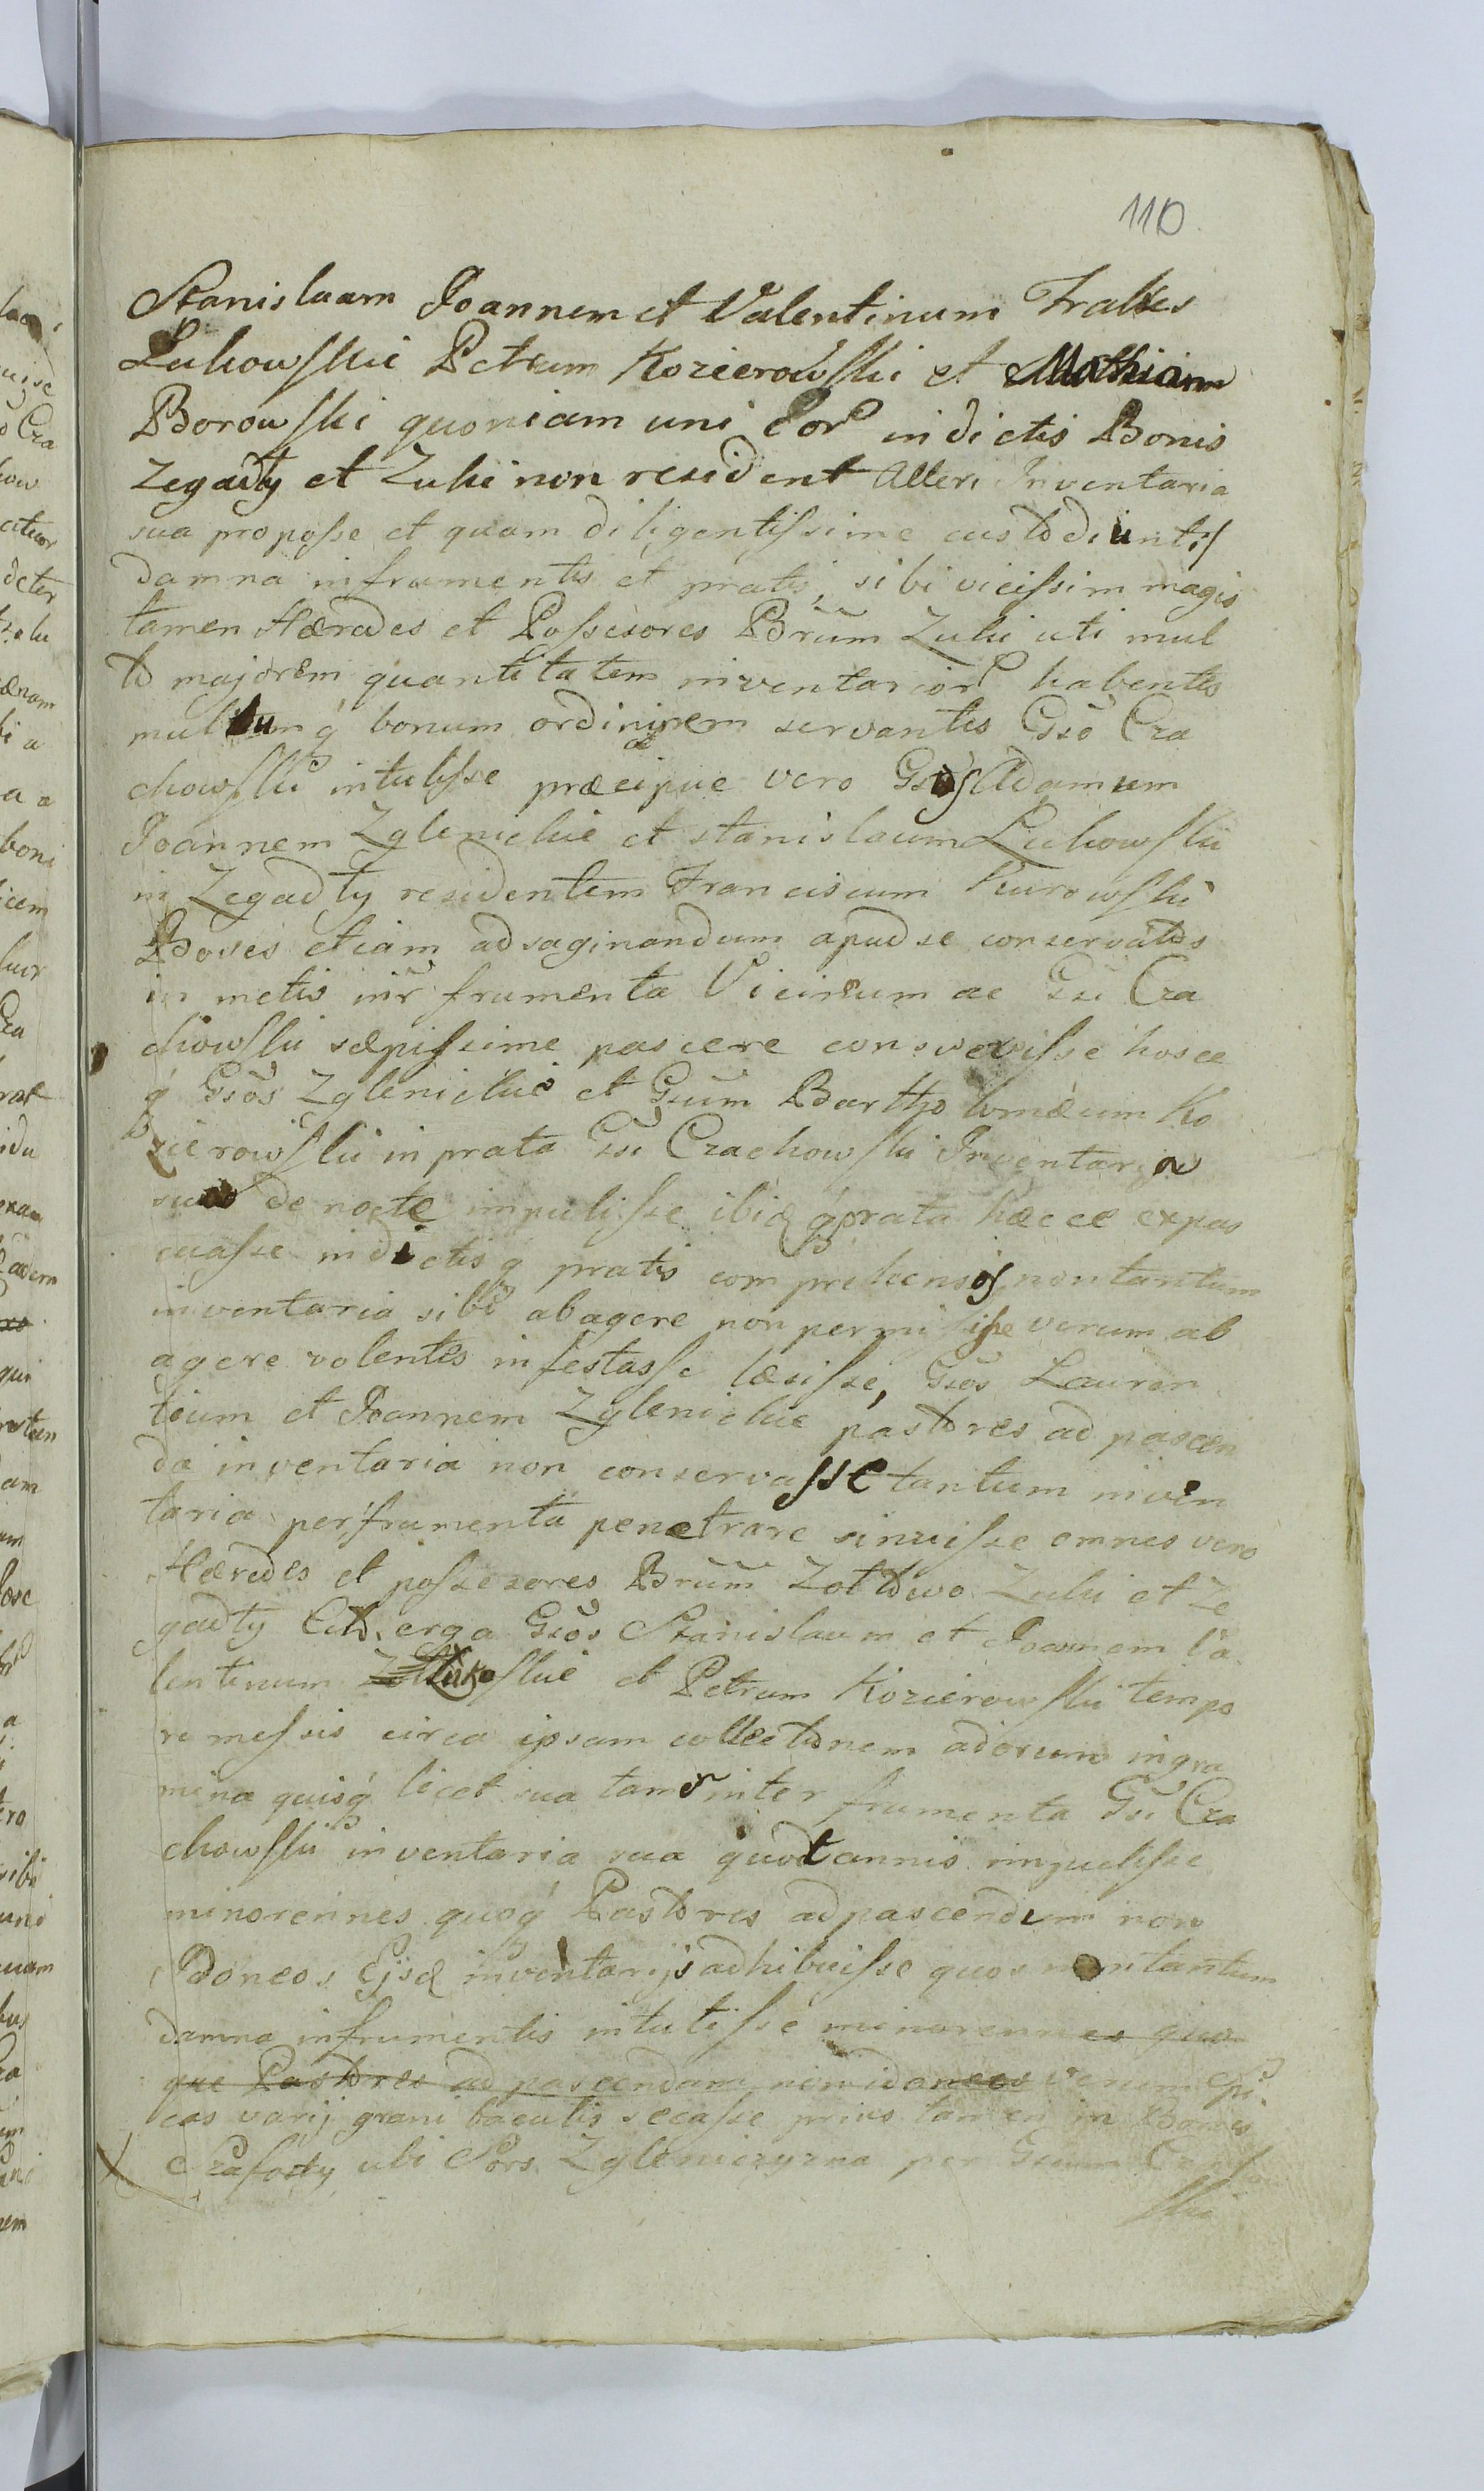 110
Stanislaum Joannem et Valentinum Fratres
Lukowskie Petrum Kozierowski et Mathiam
Borowski quoniam uni Eor in dictis Bonis
Zegadty et Zuki non resident Alteri Inventaria
sua pro posse et quam diligentissime custodiunt
damna in frumentis et pratis, sibi vicissim magis
tamen Hæredes et Possesores Brũm Zuki uti mul
to majorem quantitatem inventarior habentes
multumq́ bonum ordininem servantes Gso Cza
chowski intulisse præcipue vero Gsos Adamum
Joannem Zglenickie et Stanislaum Lukowski
in Zegadty residentem Franciscum Kurowski
Boves etiam ad saginandum apud se conservatos
in metis inr frumenta Vicinum ac Gsi Cza
chowski sæpissime pascere consvevisse hosce
q́ Gsõs Zglenickie et Gsum Bartholomæum Ko
zierowski in prata Gsi Czachowski Inventaria
sua de nocte impulisse ibiq prata hæcce expas
cuasse in dictis q́ pratis comprehensos non tantum
inventaria sibi abagere non permisisse verum ab
agere volentes infestasse læsisse, Gsos Lauren
tium et Joannem Zglenickie pastores ad pascen
da inventaria non conservasse tantum inven
taria per frumenta penetrare sinvisse omnes vero
Hæredes et possesores Brũm Zottowo Zuki et Ze
gadty Ect. erga Gsõs Stanislaum et Joannem Va
lentinum Lukoskie et Petrum Kozierowski tempo
re messis circa ipsam collectionem adorum in gra
mina quisq́ licet sua tamen inter frumenta Gsi Cza
chowski inventaria sua quotannis impulisse
minorennes quoq́ Pastores ad pascendum non
Idoneos Ejsd inventarijs adhibuisse quos non tantum
damna in frumentis intulisse minorennes quo
que Pastores ad pascendam non idoneos verum spi
cas varij grani baculis secasse prius tamen in Bonis
Czafosty ubi Sors Zgleniczyzna per Gsum
ski